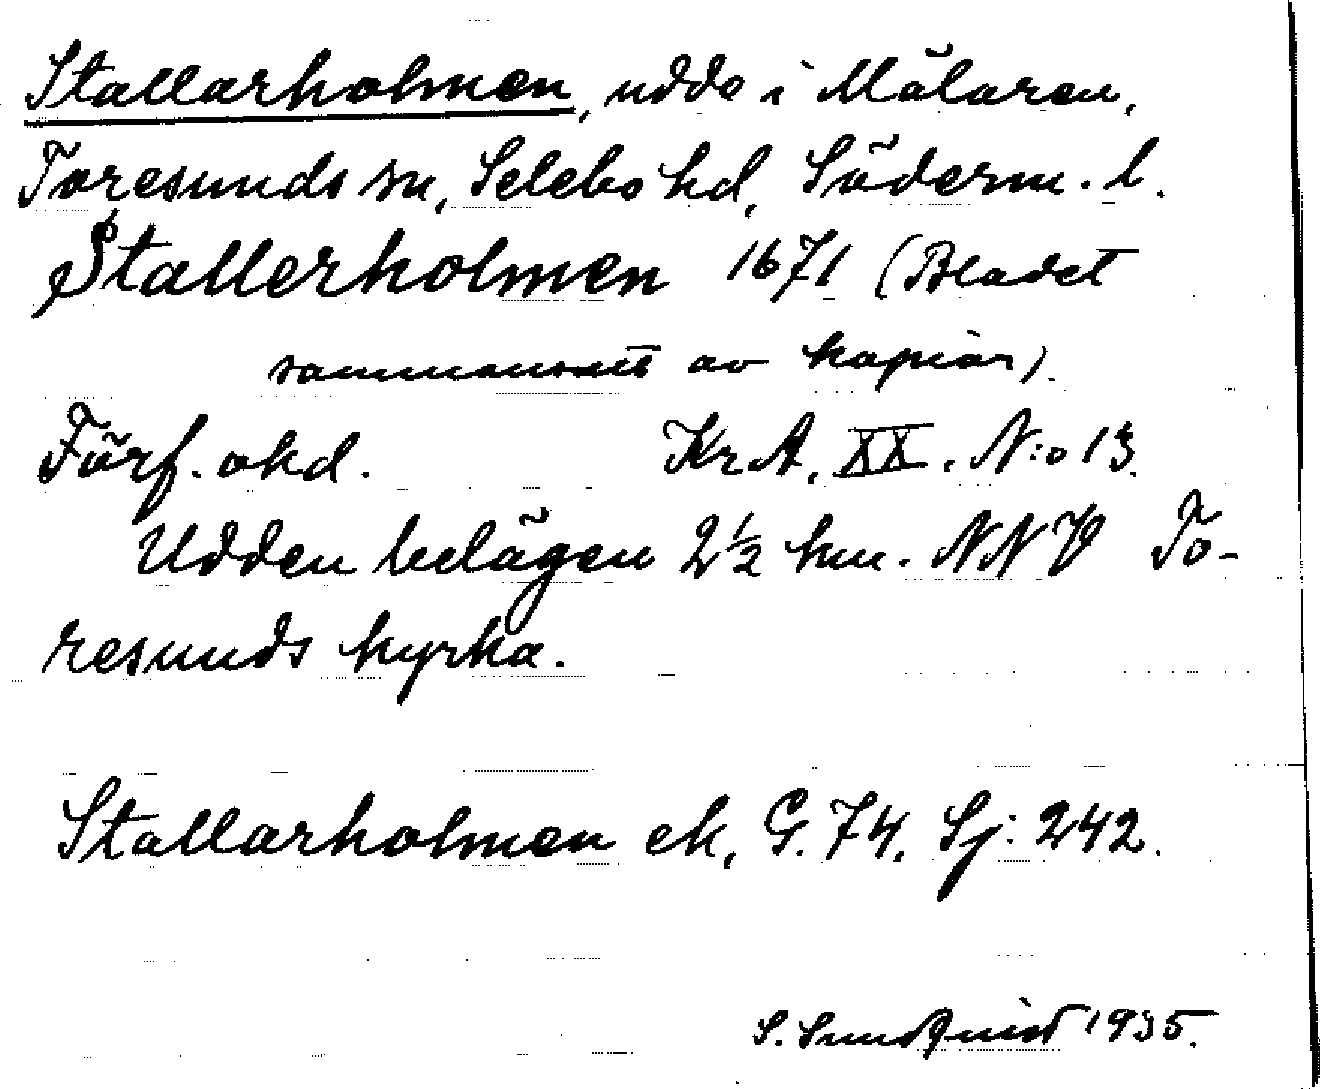 Stallarholmen, udde i Mälaren,
Toresunds sn, Selebo hd, Söderm. l.
Stallerholmen 1671 (Bladet
sammansatt av kopior).
Förf. okd. Kr A, XX. N:o 13.
Udden belägen 2½ km. NNV To-
resunds kyrka.
Stallarholmen ek, G. 74. Sj: 242.
S. Sundquist 1935.